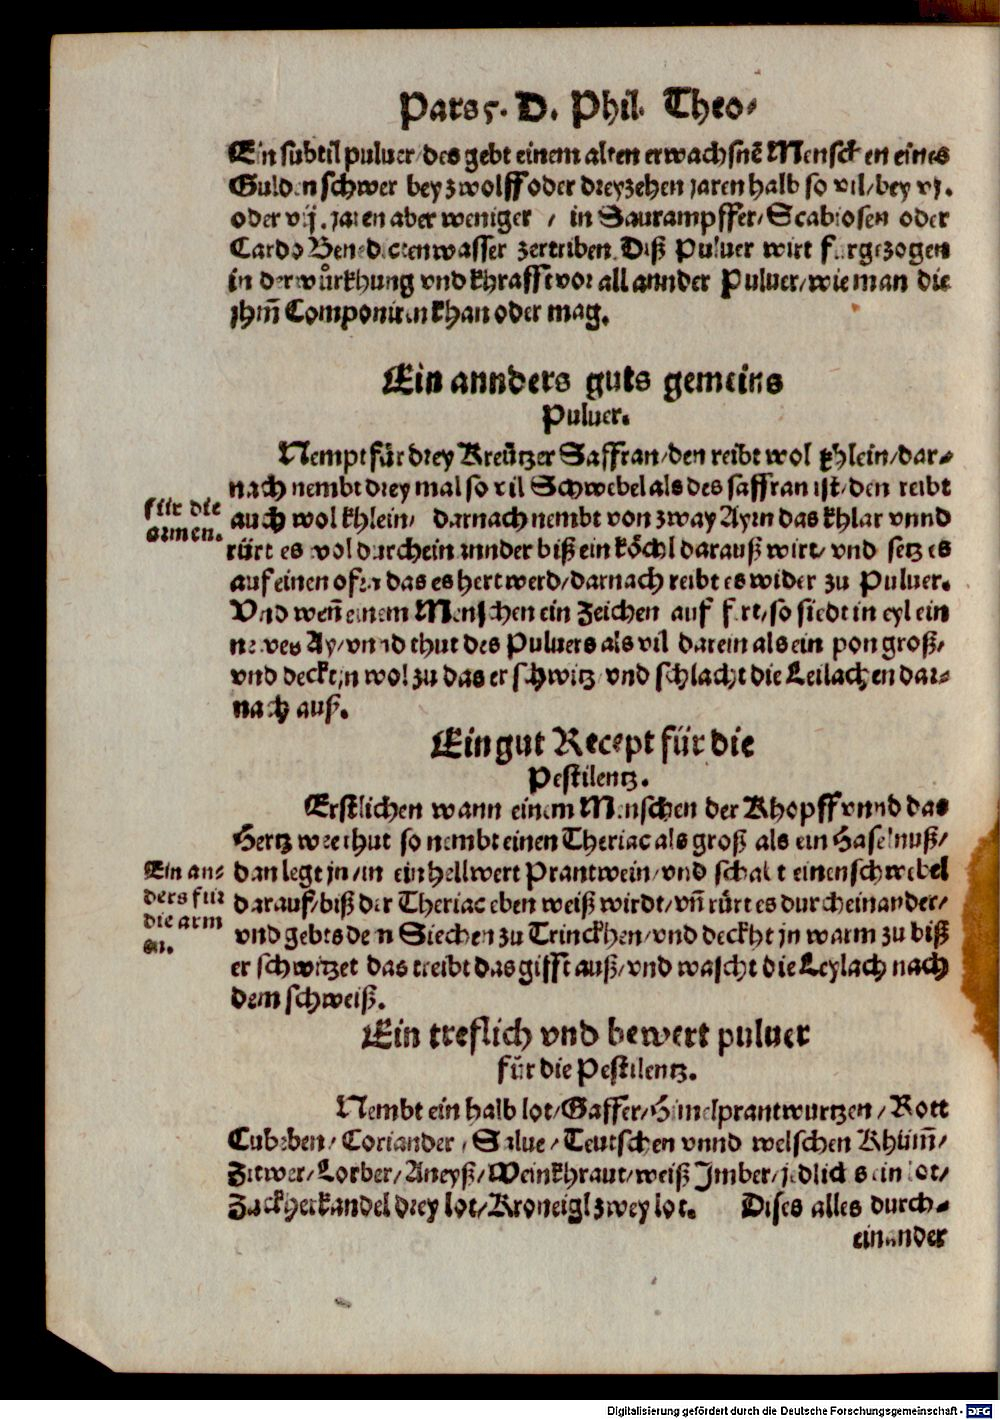 Pars 5. D. Phil. Theo-
Ein subtil puluer/des gebt einem alten erwachsnē Menschen eines
Gulden schwer bey zwolff oder dreyzehen jaren halb so vil/bey vj.
oder vij. jaren aber weniger / in Saurampffer/Scabiosen oder
Cardo Benedictenwasser zertriben. Diß Puluer wirt fürgezogen
in der wůrkhung vnd khrafft vor all annder Puluer/wie man die
jhm̄ Componiren khan oder mag.
Ein annders guts gemeins
Puluer.
Nempt für drey Kreützer Saffran/den reibt wol khlein/dar-
nach nembt drey mal so vil Schwebel als des saffran ist/den reibt
für die
armen.
auch wol khlein/ darnach nembt von zway Ayrn das khlar vnnd
rürt es wol durcheinannder biß ein köchl darauß wirt/vnd setz es
auf einen ofen das es hert werd/darnach reibt es wider zu Puluer.
Vnd weñ einem Menschen ein Zeichen auf fert/so siedt in eyl ein
newes Ay/vnnd thut des Puluers als vil darein als ein pon groß/
vnd deckt jn wol zu das er schwitz/vnd schlacht die Leilachen dar-
nach auß.
Ein gut Recept für die
Pestilentz.
Erstlichen wann einem Menschen der Khopff vnnd das
Hertz wee thut so nembt einen Theriac als groß als ein Haselnuß/
Ein an-
ders für
die arm
en.
dan legt jn in ein hellwert Prantwein/vnd schabt einen schwebel
darauf/biß der Theriac eben weiß wirdt/vñ rürt es durcheinander/
vnd gebts den Siechen zu Trinckhen/vnd deckht jn warm zu biß
er schwitzet das treibt das gifft auß/vnd wascht die Leylach nach
dem schweiß.
Ein treflich vnd bewert puluer
für die Pestilentz.
Nembt ein halb lot/Gaffer/Himelprantwurtzen/Rott
Cubeben/Coriander/Salue/Teutschen vnnd welschen Khüm̄/
Zitwer/Lorber/Aneyß/Weinkhraut/weiß Jmber/jedlichs ein lot/
Zackherkandel drey lot/Kroneigl zwey lot. Dises alles durch-
einander
Digitalisierung gefördert durch die Deutsche Forschungsgemeinschaft - DFG